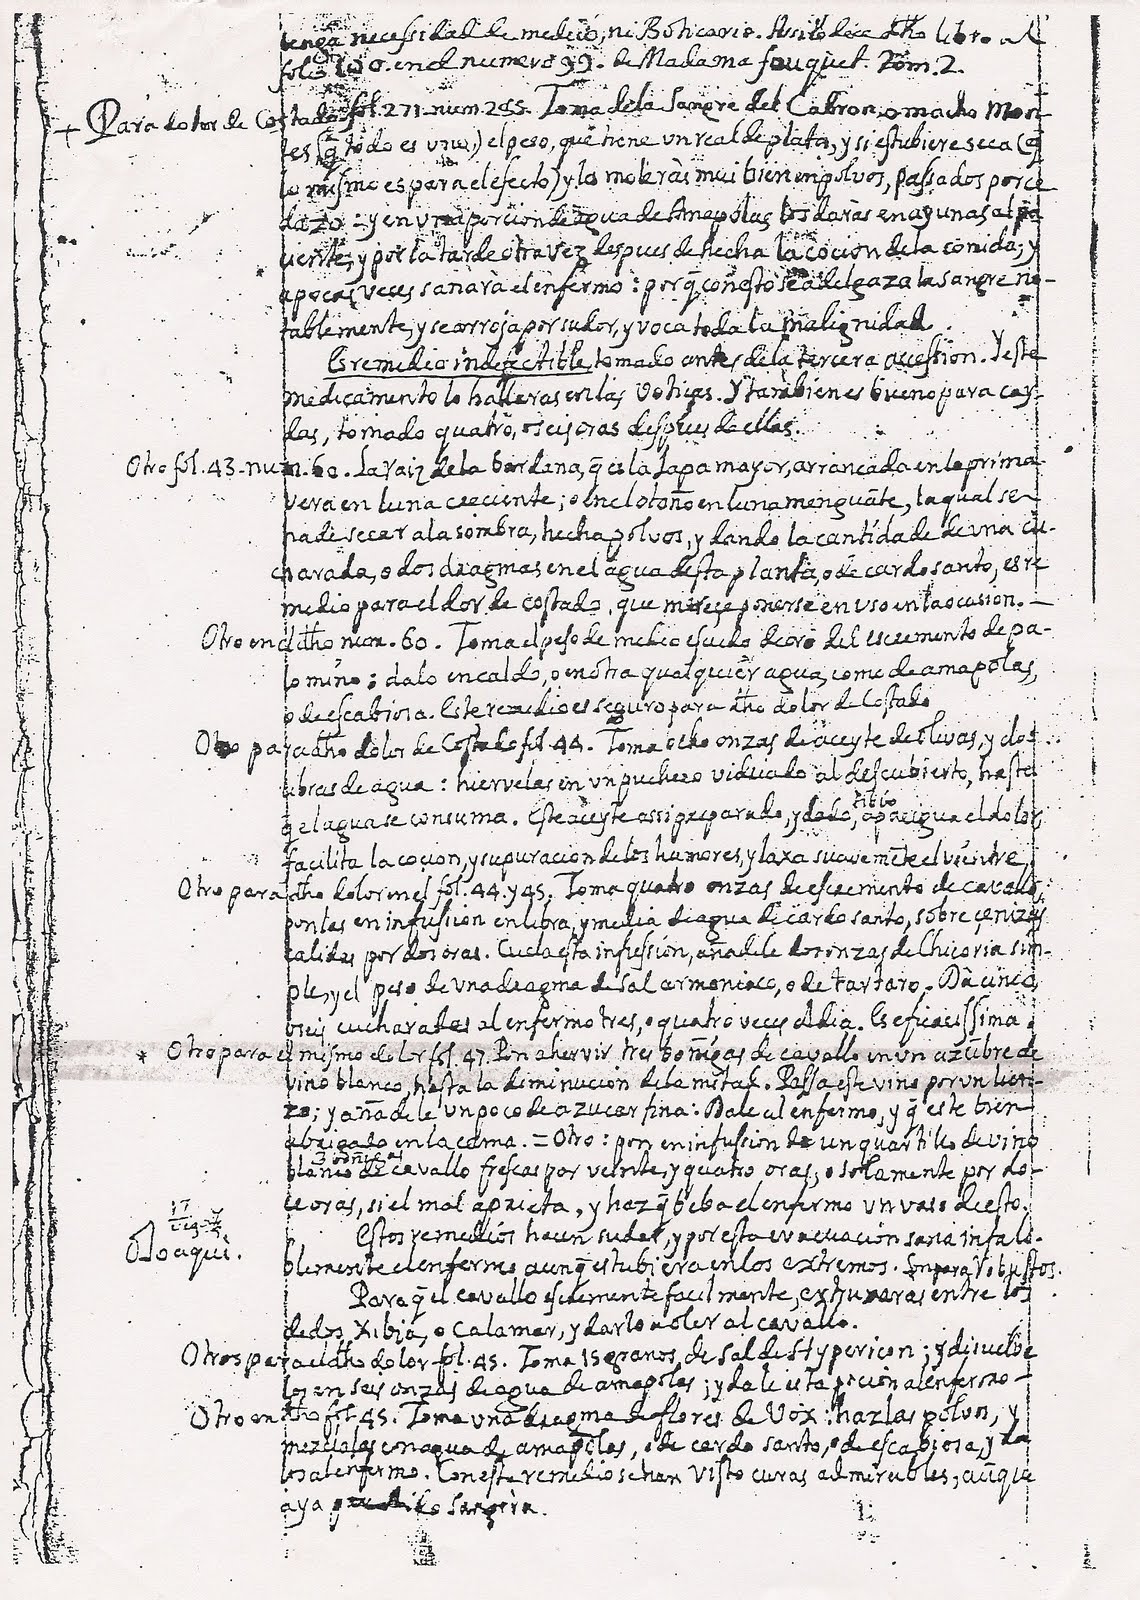 tenga necessidad de medico, ni Boticario. Assi lo dice dho libro al
folio 100. en el numero 99. de Madama fouquet. Tom. 2.
+ Para dolor de Costado fol. 271. num. 245. Toma de la Sangre del Cabron, o macho Mon-
tes (q̃ todo es uno,) el peso, que tiene un real de plata, y si estubiere seca (q̃
lo mismo es para el efecto) y lo moleràs mui bien en polvos, passados por ce
dazo: y en una porcion de agua de Amapolas los daràs en ayunas al pa
ciente, y por la tarde otra vez despues de hecha la cocion de la comida; y
a pocas veces sanarà el enfermo: por q̃ con esto se adelgaza la sangre no-
tablemente, y se arroja por sudor, y voca toda la malignidad.
Es remedio indefectible, tomado antes de la tercera accession. Y este
medicamento lo hallaras en las Voticas. Y tambien es bueno para cay-
das, tomado quatro, o seis oras despues de ellas.
Otro fol. 43. num. 60. La raiz de la bardana, q̃ es la Lapa mayor, arrancada en la prima
vera en luna creciente; o en el otoño en luna menguãte, la qual se
ha de secar a la sombra, hecha polvos, y dando la cantidad de de una cu-
charada, o dos dragmas en el agua desta planta, o de cardo santo, es re
medio para el dor de costado, que merece ponerse en uso en la ocasion. —
Otro en el dho num. 60. Toma el peso de medio escudo de oro del escremento de pa-
lomino; dalo en caldo, o en otra qualquier agua, como de amapolas,
o de escabiosa. Este remedio es seguro para dho dolor de Costado
Otro para dho dolor de Costado fol. 44. Toma ocho onzas de aceyte de olivas, y dos
libras de agua: hiervelas en un puchero vidriado al descubierto, hasta
q̃ el agua se consuma. Este aceyte assi preparado, y dado, tibio apacigua el dolor,
facilita la cocion, y supuracion de los humores, y laxa suavemẽte el vientre.
Otro para dho dolor en el fol. 44. y 45. Toma quatro onzas de escremento de cavallo,
ponlas en infusion en libra, y media de agua de cardo santo, sobre cenizas
calidas por dos oras. Cuela esta infussion, añadele dos onzas de Chicoria sim-
ple, y el peso de una dragma de sal armoniaco, o de tartaro. Dà cinco,
o seis cucharadas al enfermo tres, o quatro veces al dia. Es eficacissima.
* Otro para el mismo dolor fol. 47. Pon a hervir tres boñigas de cavallo en un azũbre de
vino blanco, hasta la diminucion de la mitad. Passa este vino por un lien-
zo; y añadele un poco de azucar fina: Dale al enfermo, y q̃ este bien
abrigado en la cama. = Otro: pon en infusion de un quartillo de vino
blanco 3 boñigas de cavallo frescas por veinte, y quatro oras; o solamente por do-
ce oras, si el mal aprieta, y haz q̃ beba el enfermo un vaso de esto.
Estos remedios hacen sudar, y por esta evacuacion sana infali-
blemente el enfermo aunq̃ estubiera en los extremos. Son para robustos.
Para q̃ el cavallo escremente facilmente, extruxaras entre los
dedos Xibia, o Calamar, y darlo a oler al cavallo.
Otros para el dho dolor fol. 45. Toma 15 granos de sal de Hypericon; y disuelve
los en seis onzas de agua de amapolas; y dale esta pocion al enfermo —
Otro en dho fol. 45. Toma una dragma de flores de Vox: hazlas polvo, y
mezclalas en agua de amapolas, o de cardo santo, o de escabiosa, y da
los al enfermo. Con este remedio se han visto curas admirables, aũque
aya precedido Sangria.
17
Joaquĩ.